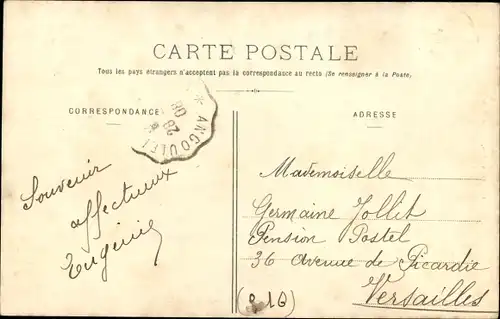 CARTE POSTALE
Tous les pays étrangers n'acceptent pas la correspondance au recto (Se renseigner à la Poste)
CORRESPONDANCE
ADRESSE
ANGOULE
28
08
Souvenir
affectueux
Eugénie
Mademoiselle
Germaine Jollit
Pension Postel
36 Avenue de Picardie
Versailles